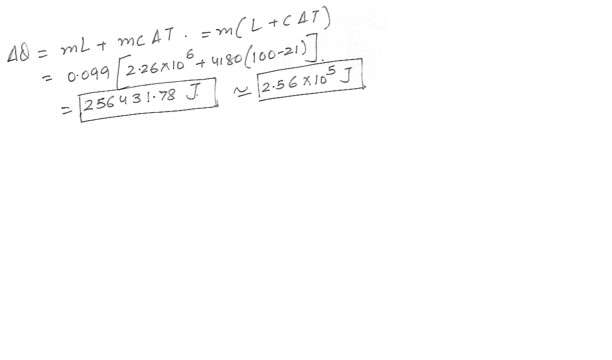 ΔQ = mL + mcΔT. = m(L + cΔT)
= 0.099 [2.26×10⁶ + 4180(100-21)].
= 256431.78 J ≃ 2.56×10⁵ J